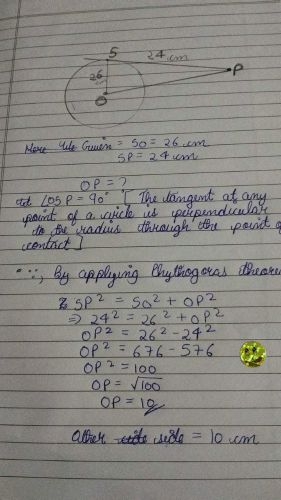 S
24 cm
P
26
O
Here Given = SO = 26 cm
SP = 24 cm
OP = ?
∠OSP = 90° [The tangent at any
point of a circle is perpendicular
to the radius through the point of
contact]
∵, By applying Phythogoras theorem
SP² = SO² + OP²
⇒ 24² = 26² + OP²
OP² = 26² - 24²
OP² = 676 - 576
OP² = 100
OP = √100
OP = 10
Other side = 10 cm